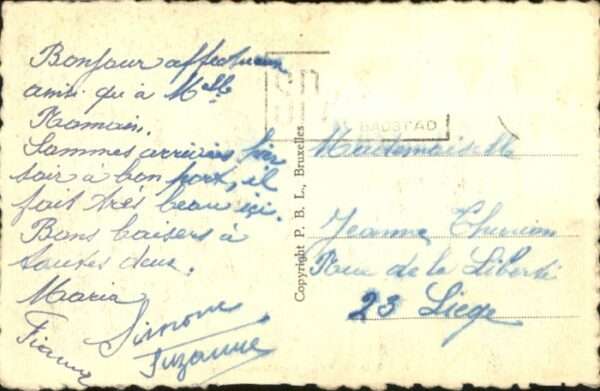 Bonjour affectueux
ainsi qu'à Melle
Romain.
Sommes arrivées hier
soir à bon port, il
fait très beau ici.
Bons baisers à
toutes deux.
Maria
Simone
Suzanne
Copyright P. B. L., Bruxelles
BADSTAD
Mademoiselle
Jeanne Thirion
Rue de la Liberté
23 Liège